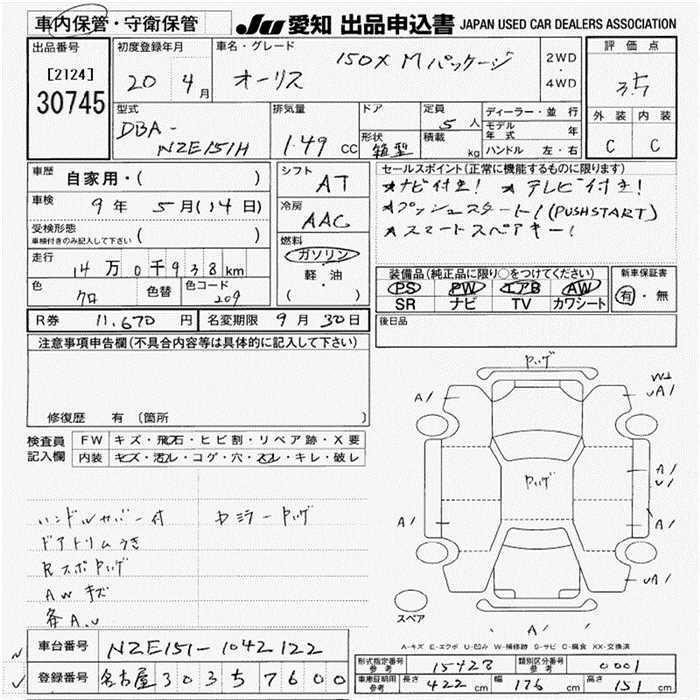 車内保管・守衛保管
JU 愛知 出品申込書 JAPAN USED CAR DEALERS ASSOCIATION
出品番号
[2124]
30745
初度登録年月
20 4月
車名・グレード
オーリス 150X Mパッケージ
2WD
4WD
評価点
3.5
外装 内装
C C
型式
DBA-
NZE151H
排気量
1.49 cc
ドア
形状
箱型
定員
5 人
積載
kg
ディーラー・並行
モデル年式 年
ハンドル 左・右
車歴
自家用・( )
車検
9年 5月(14日)
受検形態
車検付きのみ記入して下さい ( )
走行
14万0千938km
色
クロ
色替
色コード
209
シフト
AT
冷房
AAC
燃料
ガソリン
軽・油
( )
セールスポイント(正常に機能するものに限ります)
★ナビ付き! ★テレビ付き!
★プッシュスタート!(PUSHSTART)
★スマートスペアキー!
装備品(純正品に限り○をつけてください)
PS PW エアB AW
SR ナビ TV カワシート
新車保証書
有・無
後日品
R券 11,670 円
名変期限 9月30日
注意事項申告欄(不具合内容等は具体的に記入して下さい)
修復歴 有 〔箇所
検査員
記入欄
FW キズ・飛石・ヒビ割・リペア跡・X要
内装 キズ・汚レ・コゲ・穴・スレ・キレ・破レ
ハンドルカバー付
ドアトリムうき
AWキズ
各A.U
A1
A1
A1
A1
UA1
UA1
A1
スペア
A
A-キズ E-エクボ U-凹み W-補修跡 S-サビ C-腐食 XX-交換済
車台番号 NZE151-1042122
登録番号 名古屋 303 57600
形式指定番号
参考
15423
類別区分番号
参考
0001
車庫証明用
参考
長さ 422 cm 幅 176 cm 高さ 151 cm